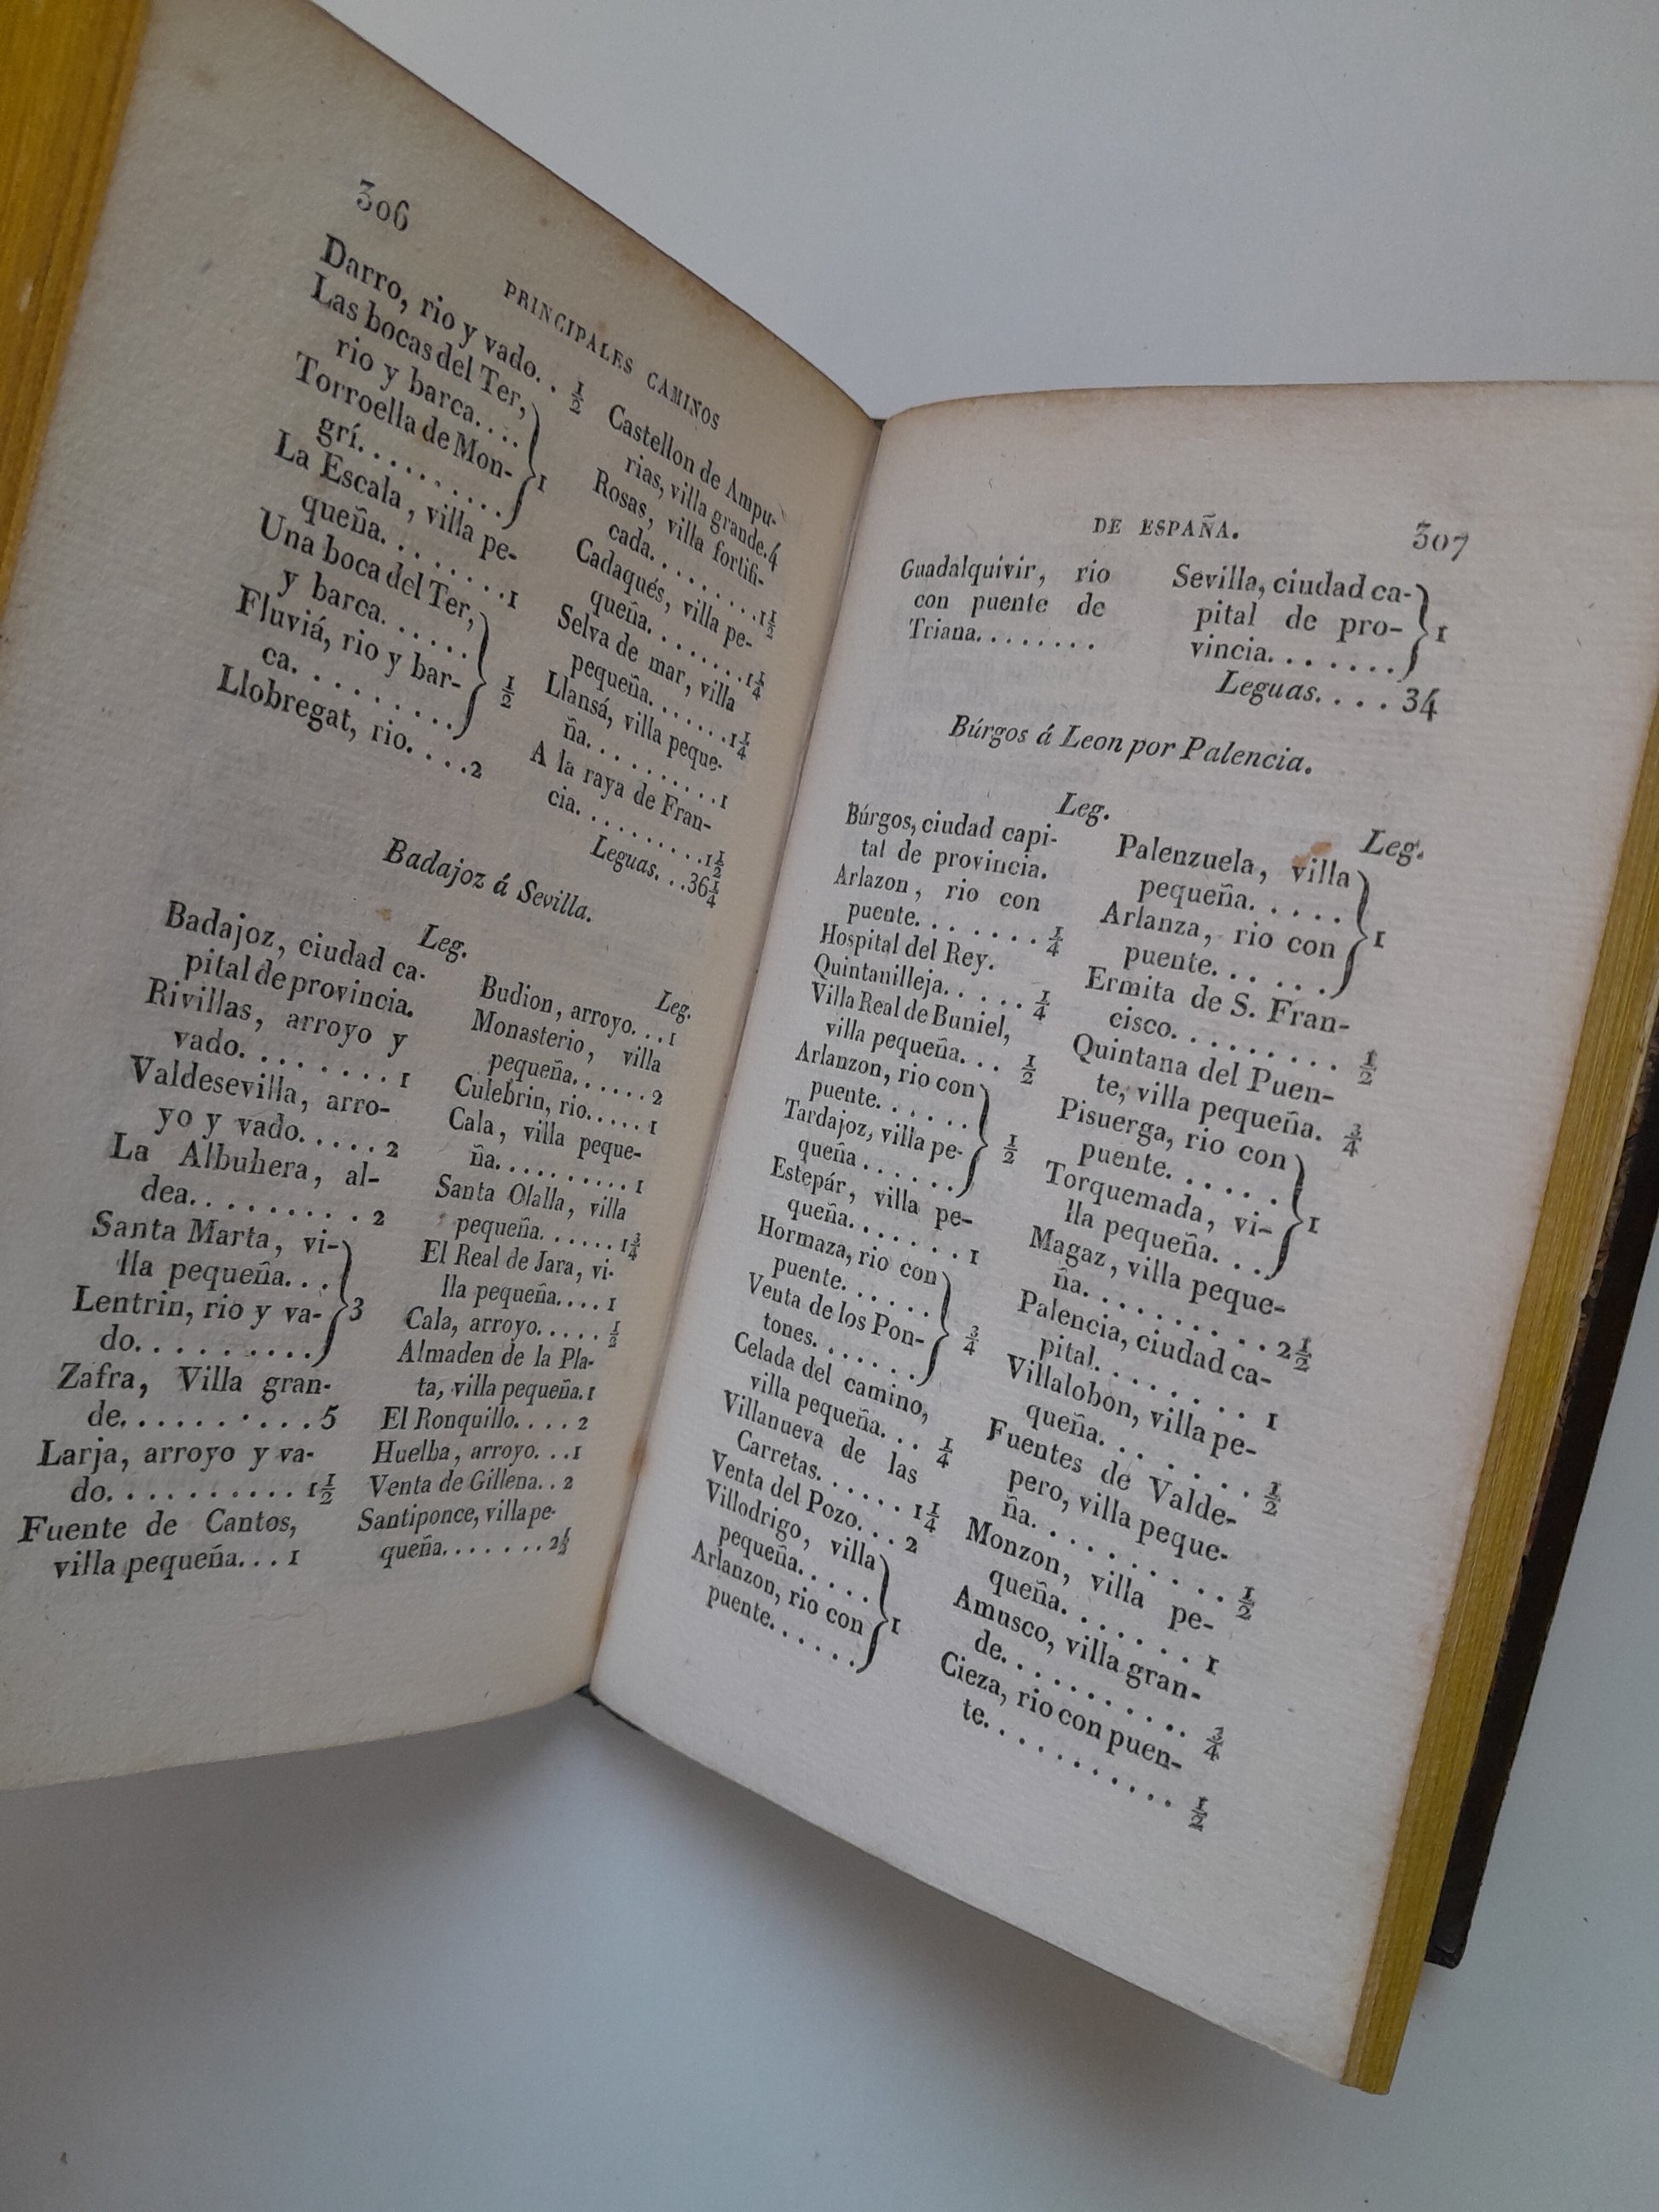 306
PRINCIPALES CAMINOS
Darro, rio y vado. . ½
Las bocas del Ter,
rio y barca. . . .
Torroella de Mon-
grí. . . . . . . . . } 1
La Escala, villa pe-
queña. . . . . . . . 1
Una boca del Ter,
y barca. . . . . .
Fluviá, rio y bar-
ca. . . . . . . . . } ½
Llobregat, rio. . . . 2
Castellon de Ampu-
rias, villa grande. 4
Rosas, villa fortifi-
cada. . . . . . . . . 1½
Cadaqués, villa pe-
queña. . . . . . . . 1¼
Selva de mar, villa
pequeña. . . . . . . 1¼
Llansá, villa peque-
ña. . . . . . . . . . 1
A la raya de Fran-
cia. . . . . . . . . . 1½
Leguas. . . 36¼
Badajoz á Sevilla.
Leg.
Badajoz, ciudad ca-
pital de provincia.
Rivillas, arroyo y
vado. . . . . . . . 1
Valdesevilla, arro-
yo y vado. . . . . 2
La Albuhera, al-
dea. . . . . . . . . 2
Santa Marta, vi-
lla pequeña. . .
Lentrin, rio y va-
do. . . . . . . . . . } 3
Zafra, Villa gran-
de. . . . . . . . . . 5
Larja, arroyo y va-
do. . . . . . . . . . 1½
Fuente de Cantos,
villa pequeña. . . 1
Leg.
Budion, arroyo. . . 1
Monasterio, villa
pequeña. . . . . . 2
Culebrin, rio. . . . . 1
Cala, villa peque-
ña. . . . . . . . . . 1
Santa Olalla, villa
pequeña. . . . . . 1¾
El Real de Jara, vi-
lla pequeña. . . . 1
Cala, arroyo. . . . . ½
Almaden de la Pla-
ta, villa pequeña. 1
El Ronquillo. . . . 2
Huelba, arroyo. . . 1
Venta de Gillena. . 2
Santiponce, villa pe-
queña. . . . . . . 2½
DE ESPAÑA.
307
Guadalquivir, rio
con puente de
Triana. . . . . . . .
Sevilla, ciudad ca-
pital de pro-
vincia. . . . . . . } 1
Leguas. . . . 34
Búrgos á Leon por Palencia.
Leg.
Búrgos, ciudad capi-
tal de provincia.
Arlazon, rio con
puente. . . . . . . . ¼
Hospital del Rey.
Quintanilleja. . . . . ¼
Villa Real de Buniel,
villa pequeña. . . ½
Arlanzon, rio con
puente. . . . . .
Tardajoz, villa pe-
queña . . . . . . } ½
Estepár, villa pe-
queña. . . . . . . . 1
Hormaza, rio con
puente. . . . . .
Venta de los Pon-
tones. . . . . . . } ¾
Celada del camino,
villa pequeña. . . ¼
Villanueva de las
Carretas. . . . . . 1¼
Venta del Pozo. . . 2
Villodrigo, villa
pequeña. . . . .
Arlanzon, rio con
puente. . . . . . } 1
Leg.
Palenzuela, villa
pequeña. . . . .
Arlanza, rio con
puente. . . . . . } 1
Ermita de S. Fran-
cisco. . . . . . . . . ½
Quintana del Puen-
te, villa pequeña. ¾
Pisuerga, rio con
puente. . . . . .
Torquemada, vi-
lla pequeña. . . . } 1
Magaz, villa peque-
ña. . . . . . . . . . 2½
Palencia, ciudad ca-
pital. . . . . . . . . 1
Villalobon, villa pe-
queña. . . . . . . . ½
Fuentes de Valde-
pero, villa peque-
ña. . . . . . . . . . ½
Monzon, villa pe-
queña. . . . . . . . 1
Amusco, villa gran-
de. . . . . . . . . . ¾
Cieza, rio con puen-
te. . . . . . . . . . ½